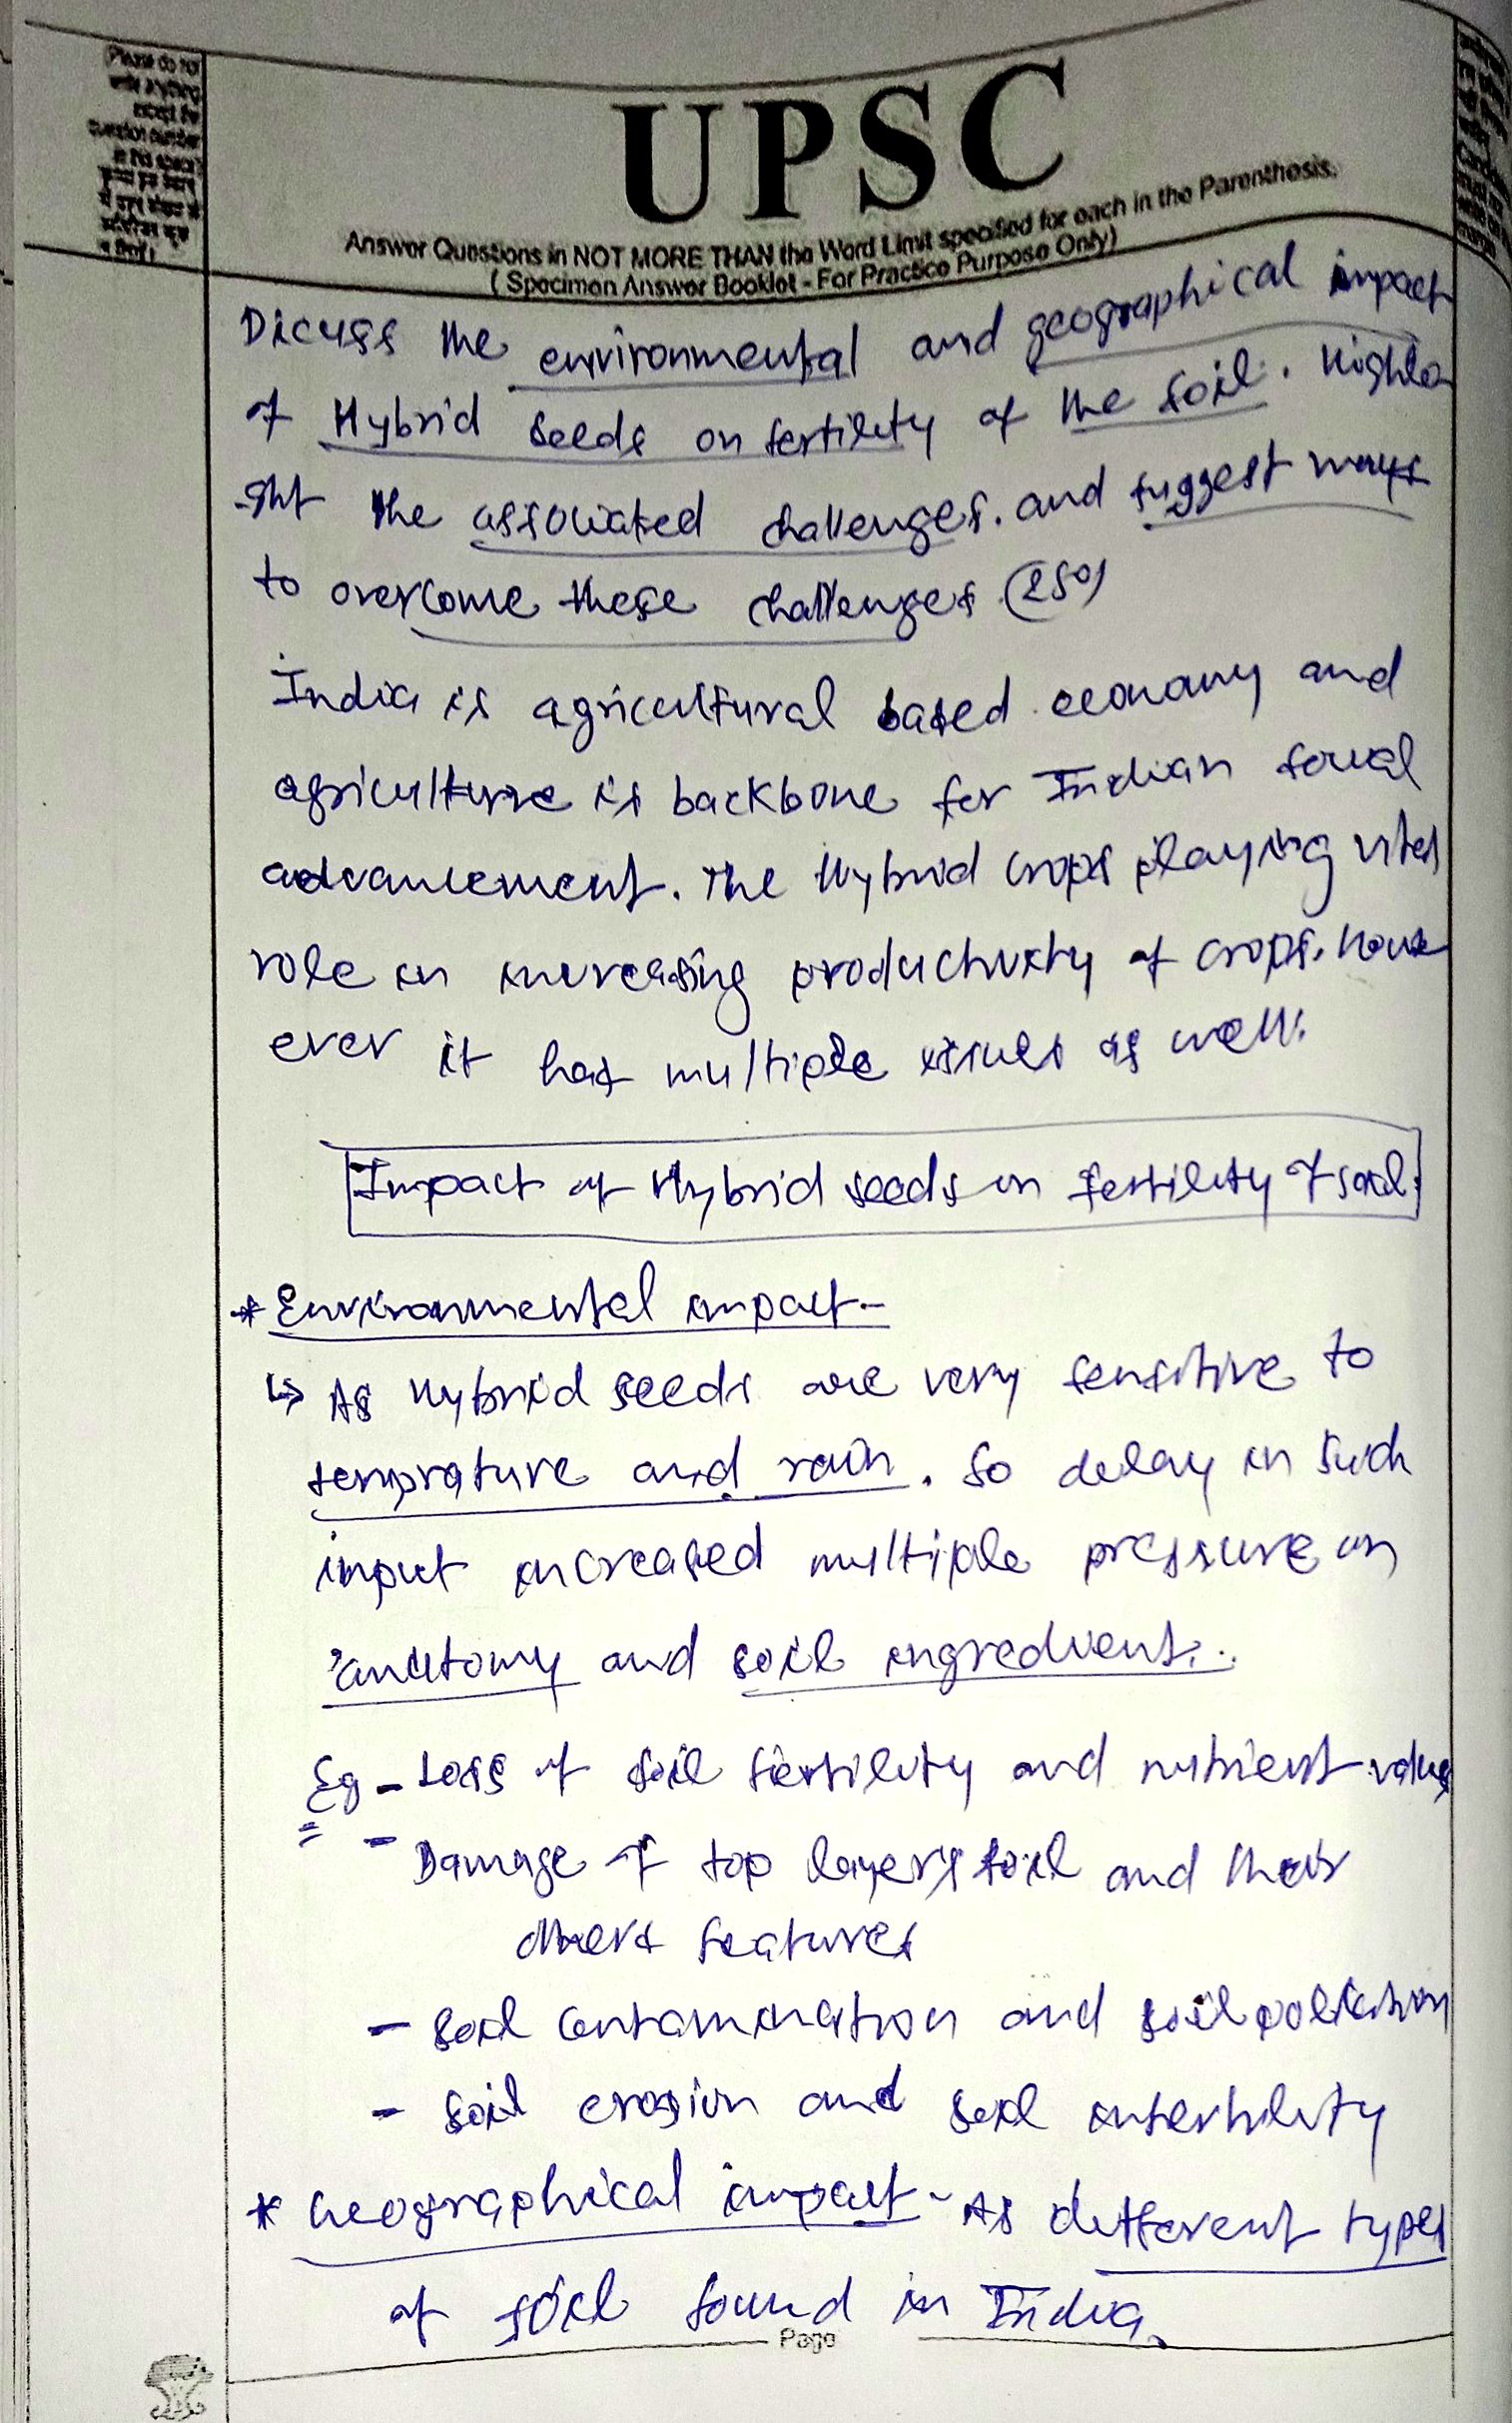 (Please do not
write anything
except the
question number
in this space)
UPSC
Answer Questions in NOT MORE THAN the Word Limit specified for each in the Parenthesis.
( Specimen Answer Booklet - For Practice Purpose Only)
Dicuss the environmental and geographical impact
of Hybrid seeds on fertility of the soil. Highli
-ght the associated challenges. and suggest ways
to overcome these challenges (250)
India is agricultural based economy and
agriculture is backbone for Indian social
advancement. The Hybrid crops playing vital
role in increasing productivity of crops. how
ever it has multiple issues as well.
Impact of Hybrid seeds in fertility of soil
* Environmental impact-
↳ As Hybrid seeds are very sensitive to
temprature and rain. So delay in such
input increased multiple pressure on
anatomy and soil ingredient.
Eg - Loss of soil fertility and nutrient value
- Damage of top layers soil and their
others features
- soil contamination and soil pollution
- soil erosion and soil infertility
* Geographical impact - As different types
of soil found in India.
Page